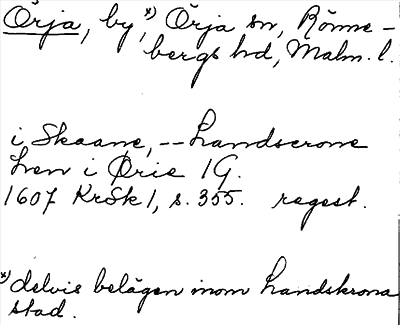 Örja, by,ˣ⁾ Örja sn, Rönne-
bergs hd, Malm. l.
i Skaane, -- Landscrone
Len i Ørie 1 G.
1607 KrSk 1, s. 355. regest.
ˣ⁾ delvis belägen inom Landskrona
stad.